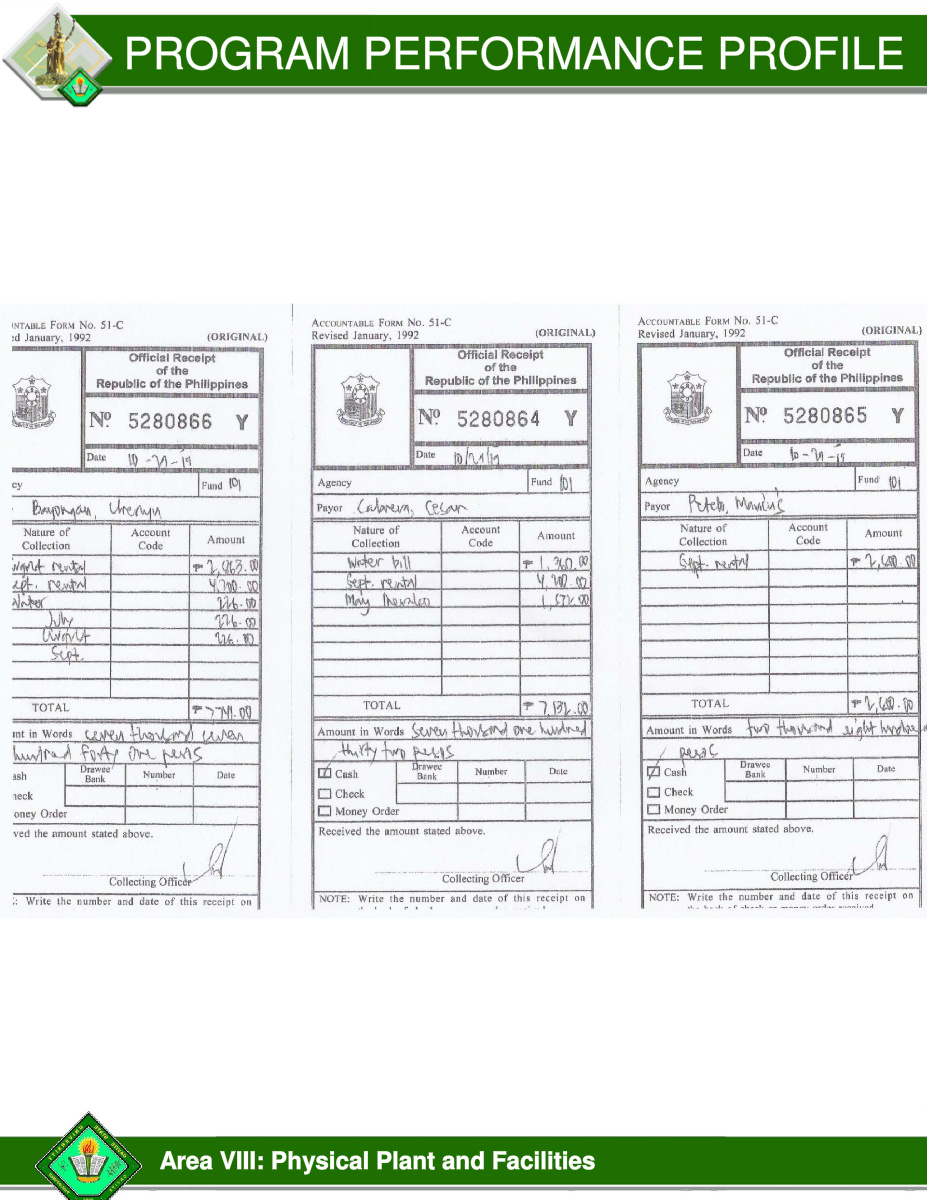 PROGRAM PERFORMANCE PROFILE
NTABLE FORM NO. 51-C
ed January, 1992 (ORIGINAL)
Official Receipt
of the
Republic of the Philippines
Nº 5280866 Y
Date 10-21-19
cy Fund 101
Nature of Collection Account Code Amount
rental ₱2,863.00
ept. rental 4,200.00
Water 226.00
July 226.00
August 226.00
Sept.
TOTAL ₱7741.00
unt in Words seven thousand seven
hundred forty one pesos
ash Drawee Bank Number Date
heck
oney Order
ved the amount stated above.
Collecting Officer
: Write the number and date of this receipt on
ACCOUNTABLE FORM NO. 51-C
Revised January, 1992 (ORIGINAL)
Official Receipt
of the
Republic of the Philippines
Nº 5280864 Y
Date 10/21/19
Agency Fund 101
Payor Cabrera, Cesar
Nature of Collection Account Code Amount
Water bill ₱1,360.00
Sept. rental 4,200.00
May 1,572.00
TOTAL ₱7,132.00
Amount in Words Seven thousand one hundred
thirty two pesos
Cash Drawee Bank Number Date
Check
Money Order
Received the amount stated above.
Collecting Officer
NOTE: Write the number and date of this receipt on
ACCOUNTABLE FORM NO. 51-C
Revised January, 1992 (ORIGINAL)
Official Receipt
of the
Republic of the Philippines
Nº 5280865 Y
Date 10-21-19
Agency Fund 101
Payor
Nature of Collection Account Code Amount
Sept. rental ₱2,800.00
TOTAL ₱2,800.00
Amount in Words two thousand eight hundred
pesos
Cash Drawee Bank Number Date
Check
Money Order
Received the amount stated above.
Collecting Officer
NOTE: Write the number and date of this receipt on
the back of check or money order received.
Area VIII: Physical Plant and Facilities